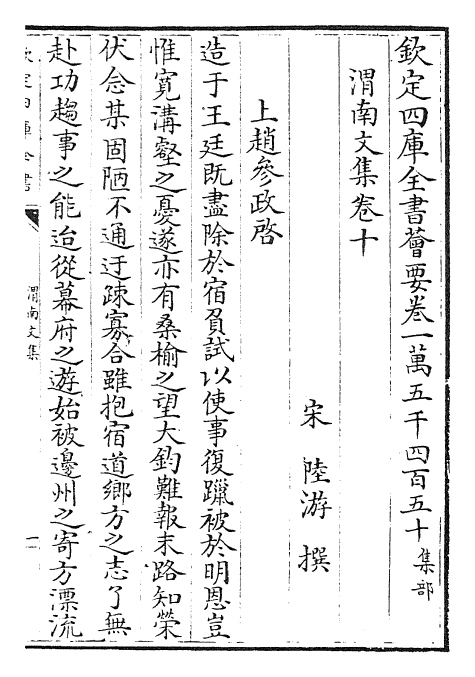 欽定四庫全書薈要卷一萬五千四百五十集部
渭南文集卷十
宋陸游撰
上趙參政啓
造于王廷既盡除於宿負試以使事復躐被於明恩豈
惟寬溝壑之憂遂亦有桑榆之望大鈞難報末路知榮
伏念某固陋不通迂疎寡合雖抱宿道鄉方之志了無
赴功趨事之能迨從幕府之遊始被邊州之寄方漂流
欽定四庫全書
渭南文集
一